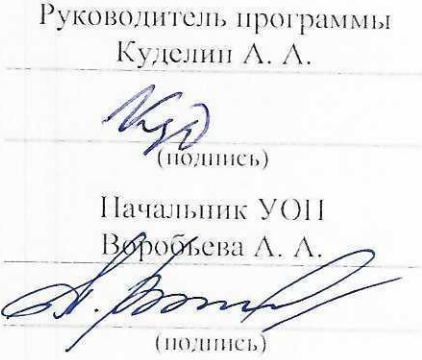 Руководитель программы
Куделин А. А.
(подпись)
Начальник УОП
Воробьева А. А.
(подпись)